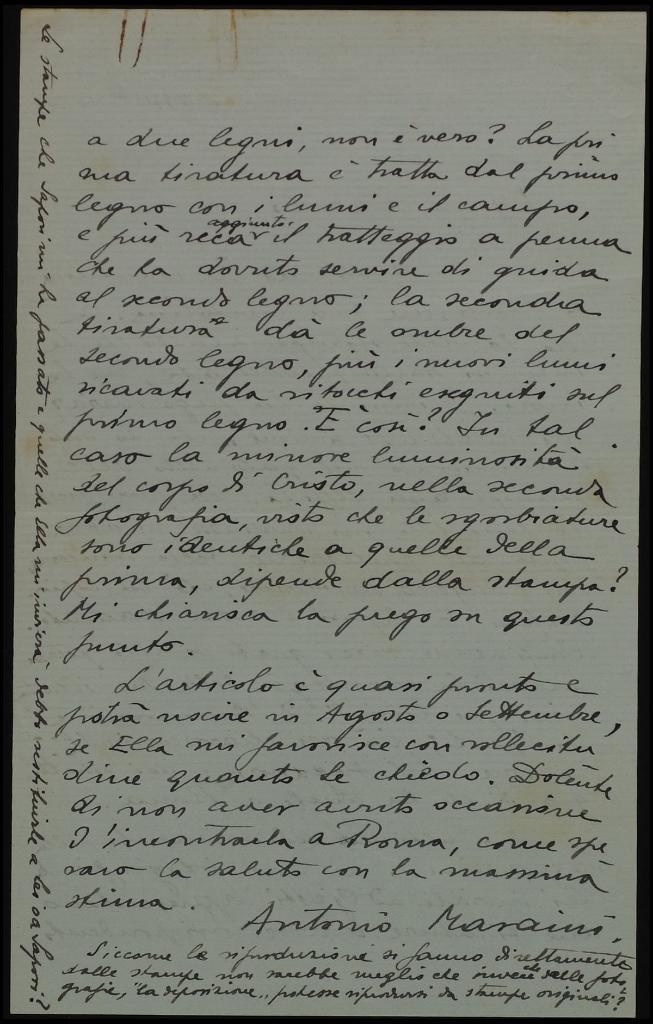 a due legni, non è vero? La pri
ma tiratura è tratta dal primo
legno con i lumi e il campo,
e più reca aggiunto il tratteggio a penna
che ha dovuto servire di guida
al secondo legno; la seconda
tiratura dà le ombre del
secondo legno, più i nuovi lumi
ricavati da ritocchi eseguiti sul
primo legno. È così? In tal
caso la minore luminosità
del corpo di Cristo, nella seconda
fotografia, visto che le sgorbiature
sono identiche a quelle della
prima, dipende dalla stampa?
Mi chiarisca la prego su questo
punto.
L'articolo è quasi pronto e
potrà uscire in Agosto o Settembre,
se Ella mi favorisce con sollecitu
dine quanto Le chiedo. Dolente
di non aver avuto occasione
d'incontrarla a Roma, come spe
ravo la saluto con la massima
stima.
Antonio Maraini.
Siccome le riproduzioni si fanno direttamente
dalle stampe non sarebbe meglio che invece che dalle foto
grafie, "la deposizione" potesse riprodursi da stampe originali?
Le stampe che Sapori mi ha passato e quelle che Ella mi invierà, debbo restituirle a lei o a Sapori?